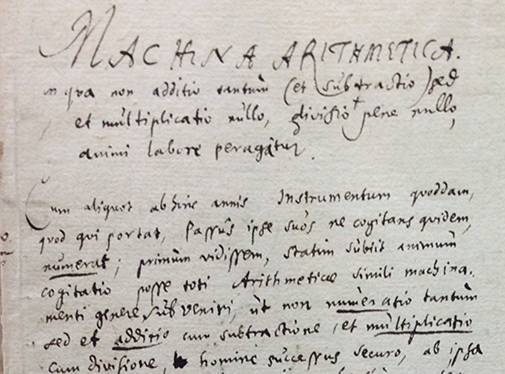 MACHINA ARITHMETICA.
in qva non additio tantùm (et sùbtractio) sed
et mùltiplicatio nùllo, divisio pene nùllo,
animi labore peragatùr.
Cum aliquot abhinc annis Instrumentum quoddam,
quod qui portat, passùs ipse sùos ne cogitans quidem,
numerat; primùm vidissem, statim sùbiit animùm
cogitatio posse toti Arithmeticæ simili machina-
menti genere sùbveniri, ùt non nùmeratio tantùm
sed et additio cum subtractione, et mùltiplicatio
cum divisione, homine sùccessus securo, ab ipsa